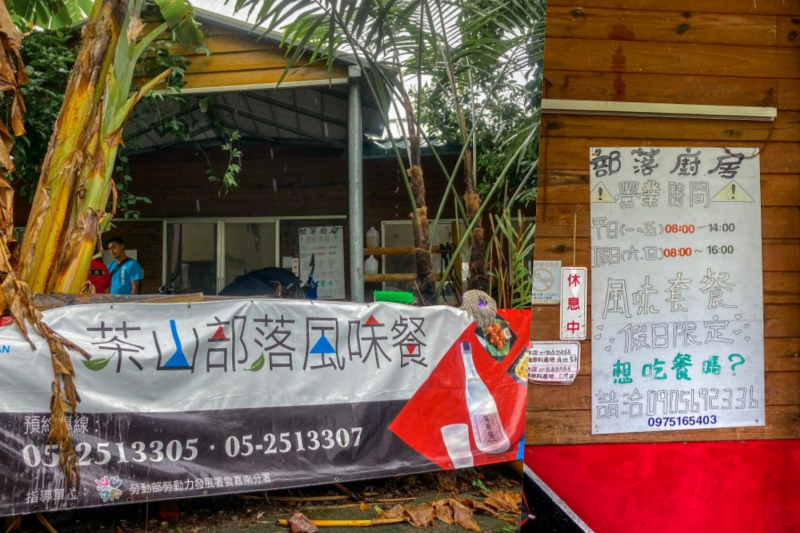 茶山部落風味餐
預約專線：
05-2513305 · 05-2513307
指導單位：
勞動部勞動力發展署雲嘉南分署
部落廚房
營業時間
平日(一~五)08:00~14:00
假日(六.日)08:00~16:00
風味套餐
假日限定
想吃餐嗎?
請洽0905692336
0975165403
休息中